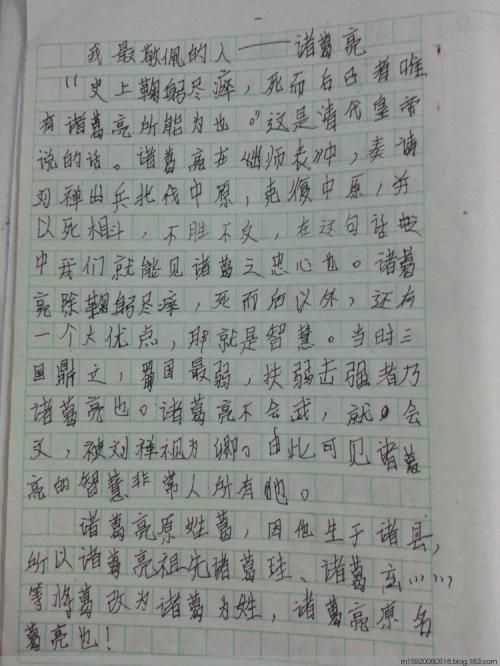 我最敬佩的人——诸葛亮
“史上鞠躬尽瘁，死而后已者唯
有诸葛亮所能为也。”这是清代皇帝
说的话。诸葛亮在《出师表》中，奏请
刘禅出兵北伐中原，克复中原，并
以死相斗，不胜不文，在这句话
中我们就能见诸葛之忠心也。诸葛
亮除鞠躬尽瘁，死而后以外，还有
一个大优点，那就是智慧。当时三
国鼎立，蜀国最弱，扶弱击强者乃
诸葛亮也。诸葛亮不会武，就会
文，被刘禅视为卿。由此可见诸葛
亮的智慧非常人所有也。
诸葛亮原姓葛，因他生于诸县，
所以诸葛亮祖先诸葛珪、诸葛玄……
等将葛改为诸葛为姓，诸葛亮原名
葛亮也！
m15920060518.blog.163.com